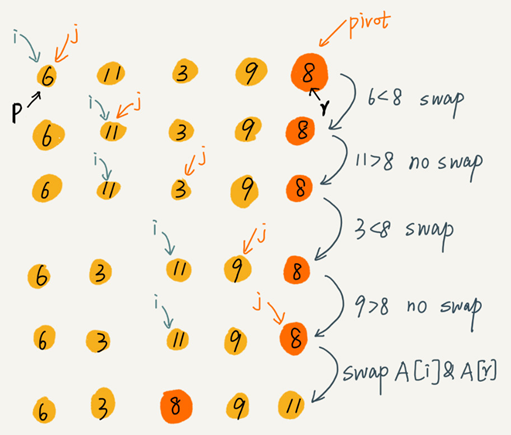 i j pivot
6 11 3 9 8
p r 6<8 swap
i j
6 11 3 9 8
i j 11>8 no swap
6 11 3 9 8
i j 3<8 swap
6 3 11 9 8
i j 9>8 no swap
6 3 11 9 8
swap A[i]&A[r]
6 3 8 9 11